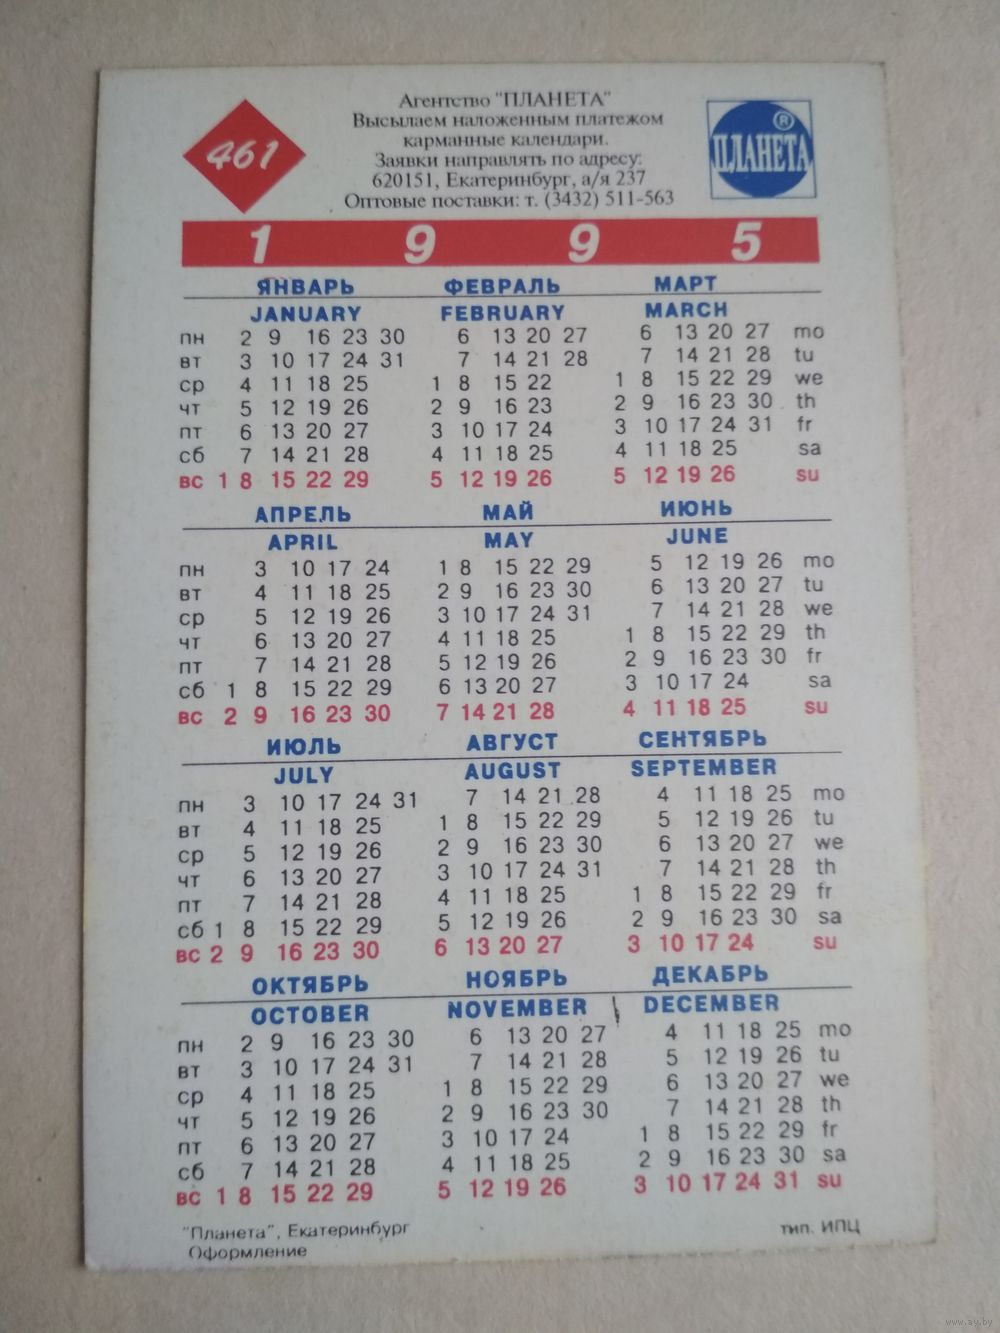 461
Агентство "ПЛАНЕТА"
Высылаем наложенным платежом
карманные календари.
Заявки направлять по адресу:
620151, Екатеринбург, а/я 237
Оптовые поставки: т. (3432) 511-563
ПЛАНЕТА ®
1 9 9 5
ЯНВАРЬ ФЕВРАЛЬ МАРТ
JANUARY FEBRUARY MARCH
пн 2 9 16 23 30 6 13 20 27 6 13 20 27 mo
вт 3 10 17 24 31 7 14 21 28 7 14 21 28 tu
ср 4 11 18 25 1 8 15 22 1 8 15 22 29 we
чт 5 12 19 26 2 9 16 23 2 9 16 23 30 th
пт 6 13 20 27 3 10 17 24 3 10 17 24 31 fr
сб 7 14 21 28 4 11 18 25 4 11 18 25 sa
вс 1 8 15 22 29 5 12 19 26 5 12 19 26 su
АПРЕЛЬ МАЙ ИЮНЬ
APRIL MAY JUNE
пн 3 10 17 24 1 8 15 22 29 5 12 19 26 mo
вт 4 11 18 25 2 9 16 23 30 6 13 20 27 tu
ср 5 12 19 26 3 10 17 24 31 7 14 21 28 we
чт 6 13 20 27 4 11 18 25 1 8 15 22 29 th
пт 7 14 21 28 5 12 19 26 2 9 16 23 30 fr
сб 1 8 15 22 29 6 13 20 27 3 10 17 24 sa
вс 2 9 16 23 30 7 14 21 28 4 11 18 25 su
ИЮЛЬ АВГУСТ СЕНТЯБРЬ
JULY AUGUST SEPTEMBER
пн 3 10 17 24 31 7 14 21 28 4 11 18 25 mo
вт 4 11 18 25 1 8 15 22 29 5 12 19 26 tu
ср 5 12 19 26 2 9 16 23 30 6 13 20 27 we
чт 6 13 20 27 3 10 17 24 31 7 14 21 28 th
пт 7 14 21 28 4 11 18 25 1 8 15 22 29 fr
сб 1 8 15 22 29 5 12 19 26 2 9 16 23 30 sa
вс 2 9 16 23 30 6 13 20 27 3 10 17 24 su
ОКТЯБРЬ НОЯБРЬ ДЕКАБРЬ
OCTOBER NOVEMBER DECEMBER
пн 2 9 16 23 30 6 13 20 27 4 11 18 25 mo
вт 3 10 17 24 31 7 14 21 28 5 12 19 26 tu
ср 4 11 18 25 1 8 15 22 29 6 13 20 27 we
чт 5 12 19 26 2 9 16 23 30 7 14 21 28 th
пт 6 13 20 27 3 10 17 24 1 8 15 22 29 fr
сб 7 14 21 28 4 11 18 25 2 9 16 23 30 sa
вс 1 8 15 22 29 5 12 19 26 3 10 17 24 31 su
"Планета", Екатеринбург тип. ИПЦ
Оформление
www.ay.by